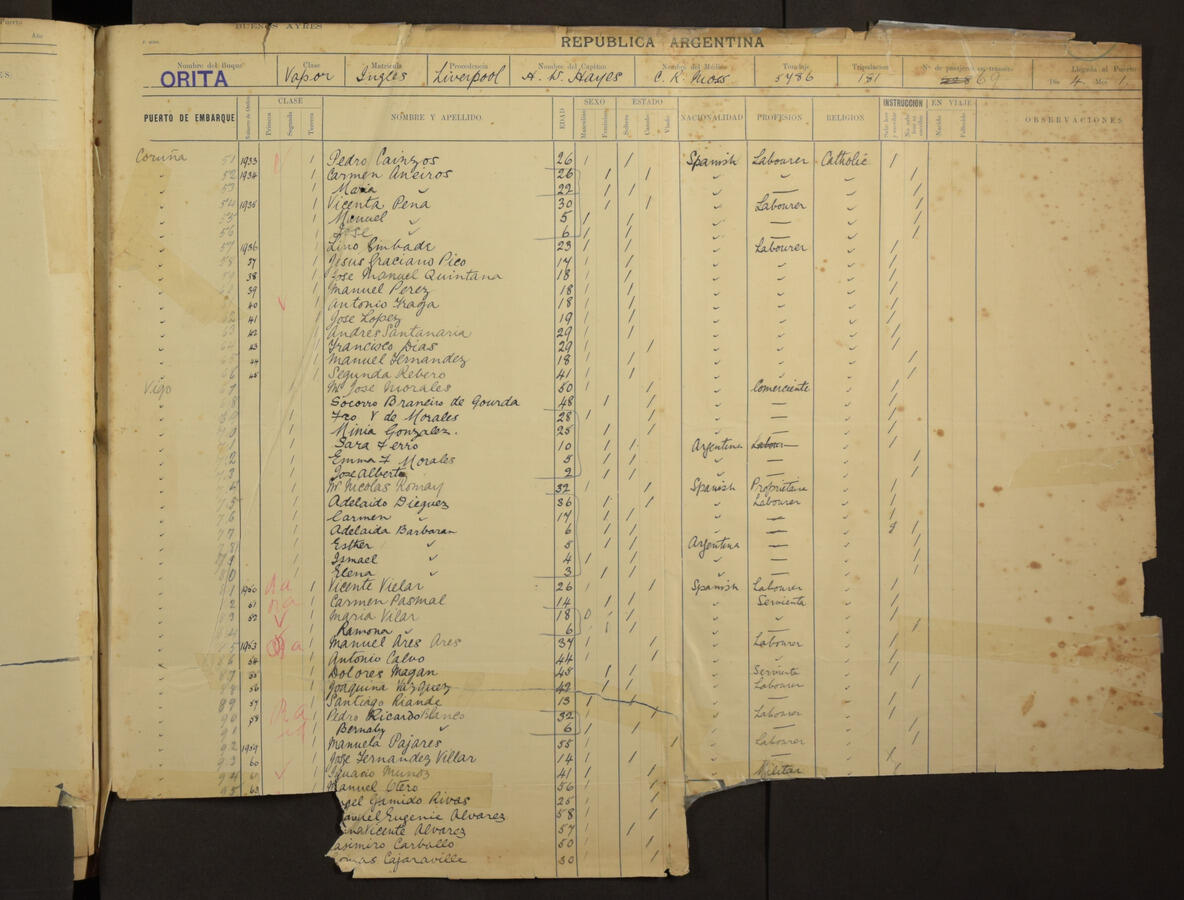 Puerto
Año
BUENOS AYRES
REPÚBLICA ARGENTINA
Nombre del Buque Clase Matrícula Procedencia Nombre del Capitán Nombre del Médico Tonelaje Tripulación Nº de pasajeros en tránsito Llegada al Puerto
ORITA Vapor Ingles Liverpool A. W. Hayes C. R. Moss 5486 181 69 Día 4 Mes 1
PUERTO DE EMBARQUE Número de Orden CLASE Primera Segunda Tercera NOMBRE Y APELLIDO EDAD SEXO Masculino Femenino ESTADO Soltero Casado Viudo NACIONALIDAD PROFESIÓN RELIGION INSTRUCCIÓN EN VIAJE Nacido Fallecido OBSERVACIONES
Coruña 51 1933 / Pedro Cainzos 26 / / Spanish Labourer Catholic /
52 1934 / Carmen Aneiros 26 / /
53 / Maria " 22 / /
54 1935 / Vicenta Pena 30 / / Labourer
55 / Manuel " 5 / /
56 / Jose " 6 / /
57 1936 / Lino Embade 23 / / Labourer
58 37 / Jesus Graciano Pico 17 / /
59 38 / Jose Manuel Quintana 18 / /
39 / Manuel Perez 18 / /
40 / Antonio Fraga 18 / /
41 / Jose Lopez 19 / /
42 / Andres Santanaria 29 / /
43 / Francisco Dias 29 / /
44 / Manuel Fernandez 18 / /
45 / Segunda Rebero 41 / /
Vigo 67 / Mr Jose Morales 50 / / Comerciente
68 / Socorro Braneiro de Gourda 48 / /
/ Fco V de Morales 28 / /
/ Minia Gonzalez. 25 / /
/ Sara Ferro 10 / / Argentina Labour
/ Emma F Morales 5 / /
/ Jose Alberto 2 / /
/ Mr Nicolas Romay 32 / / Spanish Propietare
75 / Adelaido Dieguez 36 / / Labourer
76 / Carmen " 17 / /
77 / Adelaida Barbaran 6 / /
78 / Esther " 5 / / Argentina
79 / Ismael " 4 / /
80 / Elena " 3 / /
81 1950 / Vicente Vielar 26 / / Spanish Labourer
82 51 / Carmen Pasmal 14 / / Servienta
83 52 / Maria Vilar 18 /
84 / Ramona " 6 / /
85 1953 / Manuel Ares Ares 37 / / Labourer
86 54 / Antonio Calvo 44 / /
87 55 / Dolores Magan 45 / / Serviente
56 / Joaquina Vazquez 42 / / Labourer
89 57 / Santiago Riande 13 / /
90 58 / Pedro Ricardo Blanco 32 / / Labourer
91 / Bernaby " 6 / /
92 1959 / Manuela Pajares 55 / / Labourer
93 60 / Jose Fernandez Villar 14 / /
94 61 / Ignacio Muñoz 41 / / Militar
95 63 / Manuel Otero 56 / /
ngel Gamido Rivas 25 / /
anuel Eugenie Alvarez 58 / /
Vicente Alvarez 57 / /
asimiro Carballo 50 / /
omas Cajaraville 30 / /